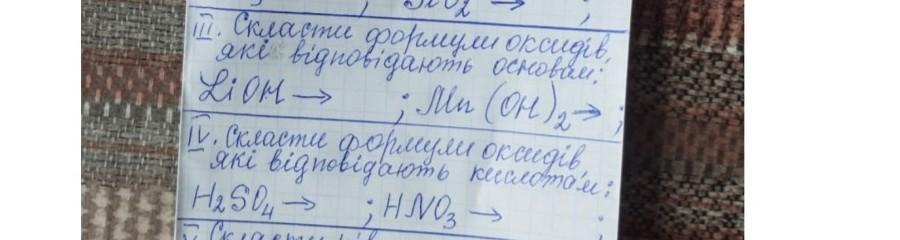 ; SiO₂ → ;
III. Скласти формули оксидів,
які відповідають основам:
LiOH → ; Mn(OH)₂ → ;
IV. Скласти формули оксидів
які відповідають кислотам:
H₂SO₄ → ; HNO₃ → ;
V. Скласти